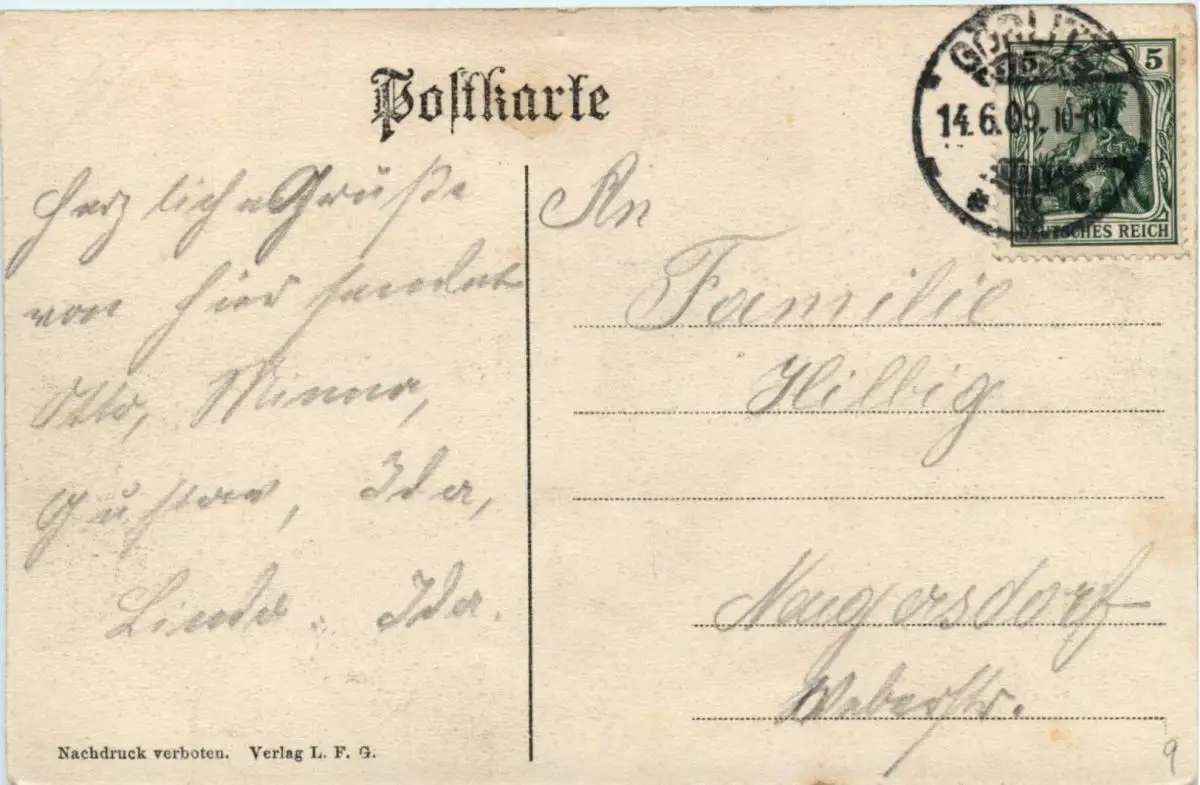 Postkarte
GÖRLITZ
14.6.09. 10-11V.
5 5
DEUTSCHES REICH
Herzliche Grüße
von hier sendet
Otto, Minna,
Gustav, Ida,
Linda. Ida.
An
Familie
Hilbig
Weberstr.
Nachdruck verboten. Verlag L. F. G.
9